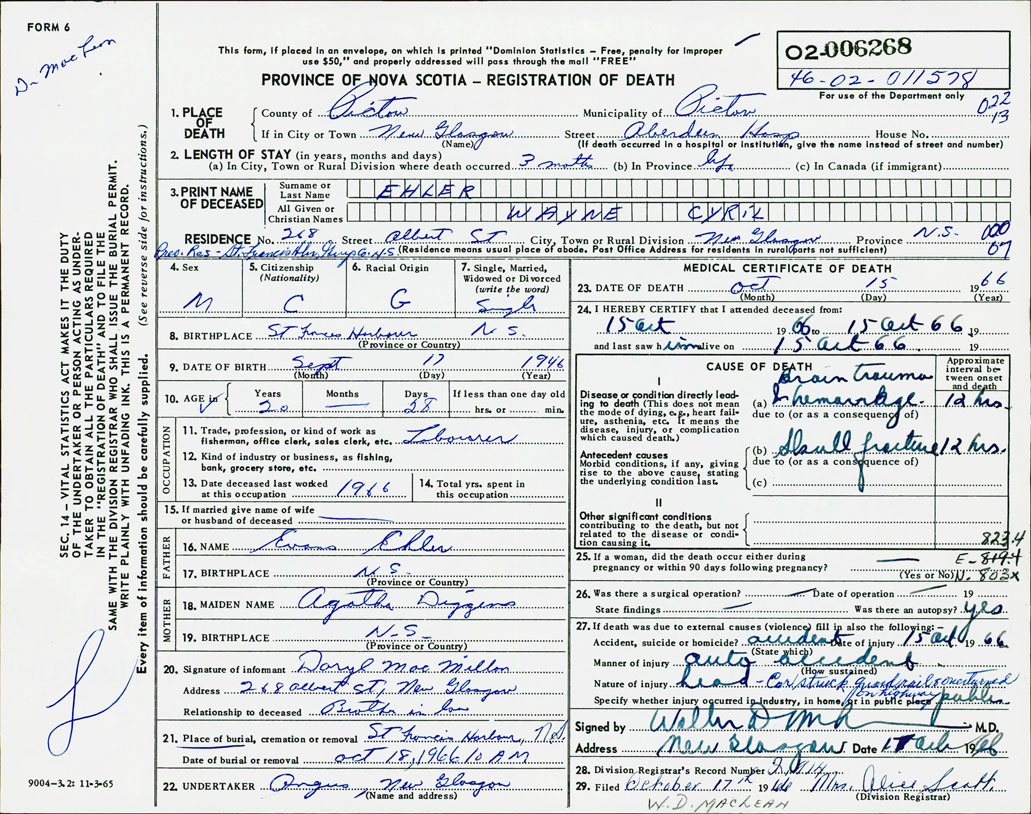 FORM 6
D- MacLean
This form, if placed in an envelope, on which is printed "Dominion Statistics – Free, penalty for improper
use $50," and properly addressed will pass through the mail "FREE"
PROVINCE OF NOVA SCOTIA – REGISTRATION OF DEATH
02-006268
46-02-011578
For use of the Department only
022
13
1. PLACE OF DEATH County of Pictou Municipality of Pictou
If in City or Town New Glasgow Street Aberdeen Hosp House No.
(Name) (If death occurred in a hospital or institution, give the name instead of street and number)
2. LENGTH OF STAY (in years, months and days)
(a) In City, Town or Rural Division where death occurred 3 moths (b) In Province life (c) In Canada (if immigrant)
3. PRINT NAME OF DECEASED Surname or Last Name EHLER
All Given or Christian Names WAYNE CYRIL
RESIDENCE No. 268 Street Albert St City, Town or Rural Division New Glasgow Province N.S. 000
07
(Residence means usual place of abode. Post Office Address for residents in rural parts not sufficient)
Prev. Res - St. Francis Hbr. Guys Co. N.S.
4. Sex M
5. Citizenship (Nationality) C
6. Racial Origin G
7. Single, Married, Widowed or Divorced (write the word) Single
8. BIRTHPLACE St Francis Harbour N S.
(Province or Country)
9. DATE OF BIRTH Sept 17 1946
(Month) (Day) (Year)
10. AGE in Years 20 Months — Days 28 If less than one day old
hrs. or min.
OCCUPATION
11. Trade, profession, or kind of work as fisherman, office clerk, sales clerk, etc. Labourer
12. Kind of industry or business, as fishing, bank, grocery store, etc.
13. Date deceased last worked at this occupation 1966
14. Total yrs. spent in this occupation
15. If married give name of wife or husband of deceased —
FATHER
16. NAME Evans Ehler
17. BIRTHPLACE N.S.
(Province or Country)
MOTHER
18. MAIDEN NAME Agatha Diggens
19. BIRTHPLACE N-S-
(Province or Country)
20. Signature of informant Daryl MacMillan
Address 268 Albert St, New Glasgow
Relationship to deceased Brother in law
21. Place of burial, cremation or removal St Francis Harbour, N.S.
Date of burial or removal Oct 18, 1966 10 AM
22. UNDERTAKER Angus, New Glasgow
(Name and address)
MEDICAL CERTIFICATE OF DEATH
23. DATE OF DEATH Oct 15 1966
(Month) (Day) (Year)
24. I HEREBY CERTIFY that I attended deceased from:
15 Oct 1966 to 15 Oct 66 19
and last saw him alive on 15 Oct 66. 19
CAUSE OF DEATH
Approximate interval between onset and death
I
Disease or condition directly leading to death (This does not mean the mode of dying, e.g., heart failure, asthenia, etc. It means the disease, injury, or complication which caused death.)
(a) Brain trauma & hemorrhage 12 hrs.
due to (or as a consequence of)
Antecedent causes
Morbid conditions, if any, giving rise to the above cause, stating the underlying condition last.
(b) Skull fracture 12 hrs.
due to (or as a consequence of)
(c)
II
Other significant conditions contributing to the death, but not related to the disease or condition causing it.
823.4
25. If a woman, did the death occur either during pregnancy or within 90 days following pregnancy? — E-819.4
(Yes or No) N. 803x
26. Was there a surgical operation? — Date of operation — 19
State findings — Was there an autopsy? yes
27. If death was due to external causes (violence) fill in also the following:–
Accident, suicide or homicide? accident Date of injury 15 Oct 1966
(State which)
Manner of injury auto accident
(How sustained)
Nature of injury head - Car struck guard rail & overturned
on highway
Specify whether injury occurred in industry, in home, or in public place public
Signed by M.D.
Address New Glasgow Date 17 Oct 1966
28. Division Registrar's Record Number
29. Filed October 17th 1966 Mrs. Alice Scott
(Division Registrar)
W.D. MACLEAN
SEC. 14 – VITAL STATISTICS ACT MAKES IT THE DUTY
OF THE UNDERTAKER OR PERSON ACTING AS UNDER-
TAKER TO OBTAIN ALL THE PARTICULARS REQUIRED
IN THE "REGISTRATION OF DEATH" AND TO FILE THE
SAME WITH THE DIVISION REGISTRAR WHO SHALL ISSUE THE BURIAL PERMIT.
WRITE PLAINLY WITH UNFADING INK. THIS IS A PERMANENT RECORD.
Every item of information should be carefully supplied. (See reverse side for instructions.)
9004-3.2: 11-3-65